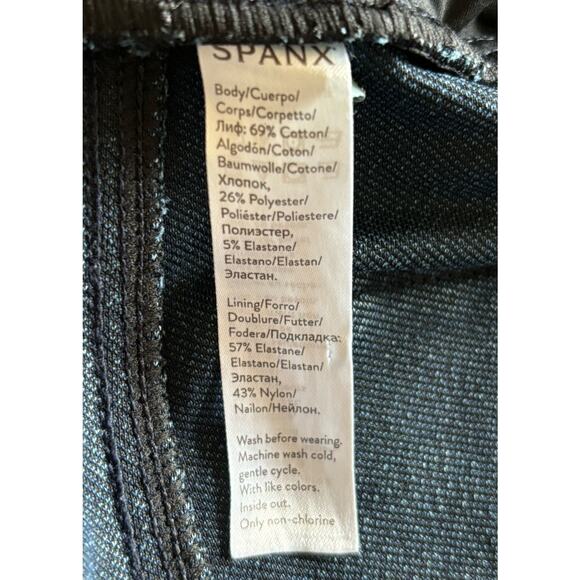 SPANX
Body/Cuerpo/
Corps/Corpetto/
Лиф: 69% Cotton/
Algodón/Coton/
Baumwolle/Cotone/
Хлопок,
26% Polyester/
Poliéster/Poliestere/
Полиэстер,
5% Elastane/
Elastano/Elastan/
Эластан.
Lining/Forro/
Doublure/Futter/
Fodera/Подкладка:
57% Elastane/
Elastano/Elastan/
Эластан,
43% Nylon/
Nailon/Нейлон.
Wash before wearing.
Machine wash cold,
gentle cycle.
With like colors.
Inside out.
Only non-chlorine